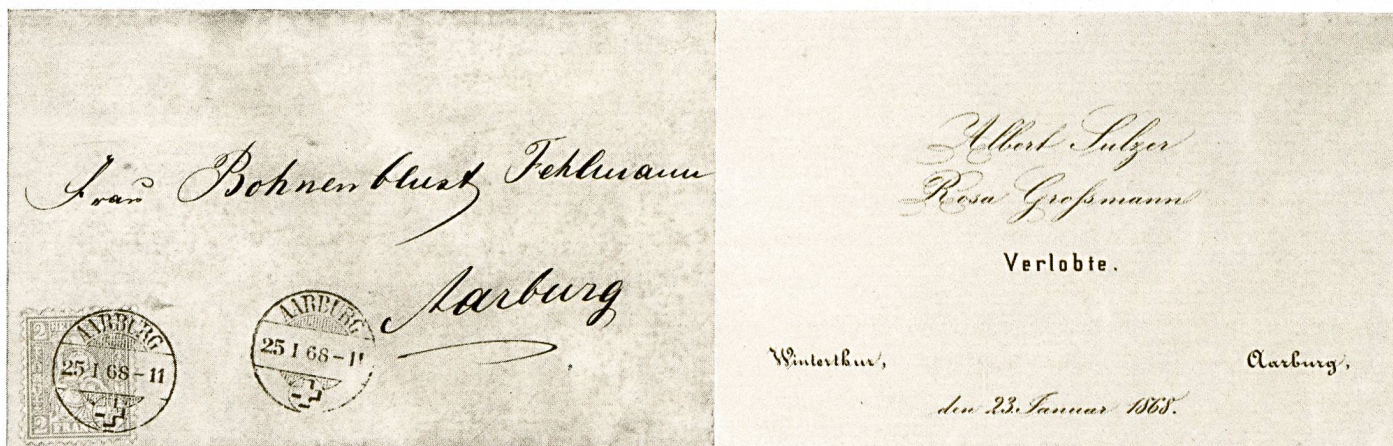 Frau Bohnenblust Fehlmann
Aarburg
AARBURG
25 I 68-11
AARBURG
25 I 68-11
2
2
FRANCO
Albert Sulzer
Rosa Großmann
Verlobte.
Winterthur,
Aarburg,
den 23. Januar 1868.